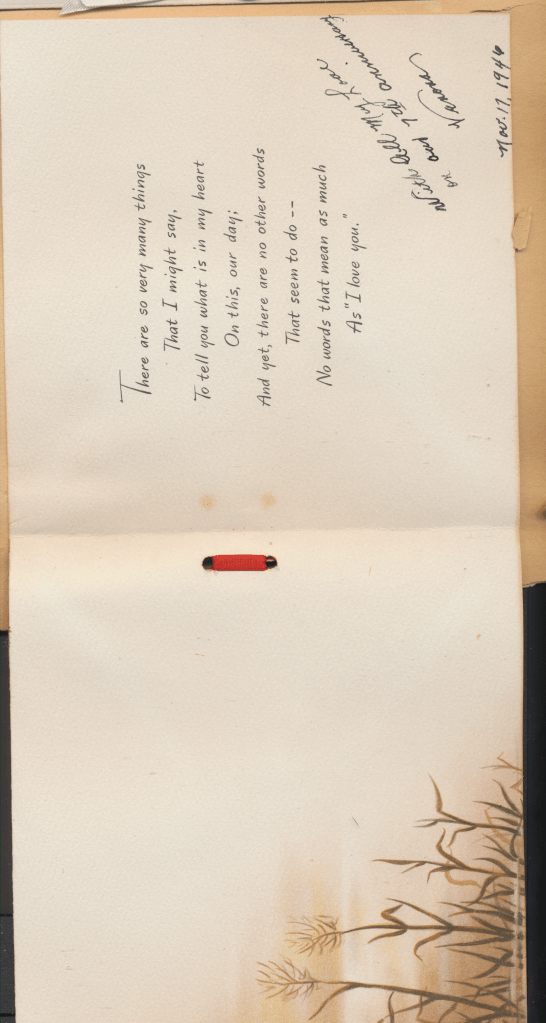 There are so very many things
That I might say,
To tell you what is in my heart
On this, our day;
And yet, there are no other words
That seem to do --
No words that mean as much
As "I love you."
With all My Love
on our 7th anniversary
Nov. 17, 1946